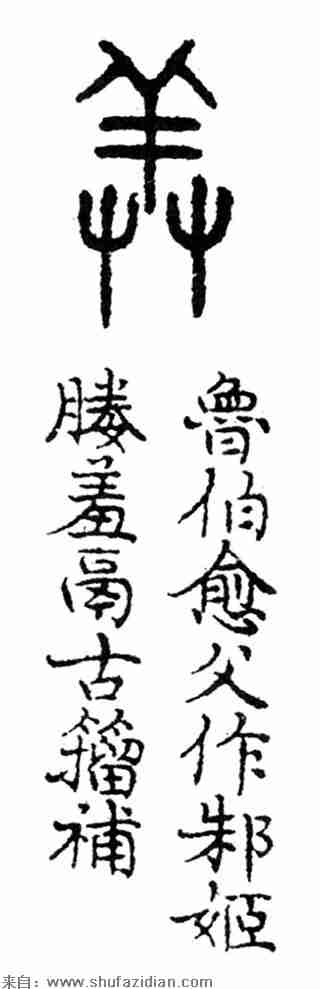 羞
魯伯愈父作邾姬
媵羞鬲古籀補
来自：www.shufazidian.com